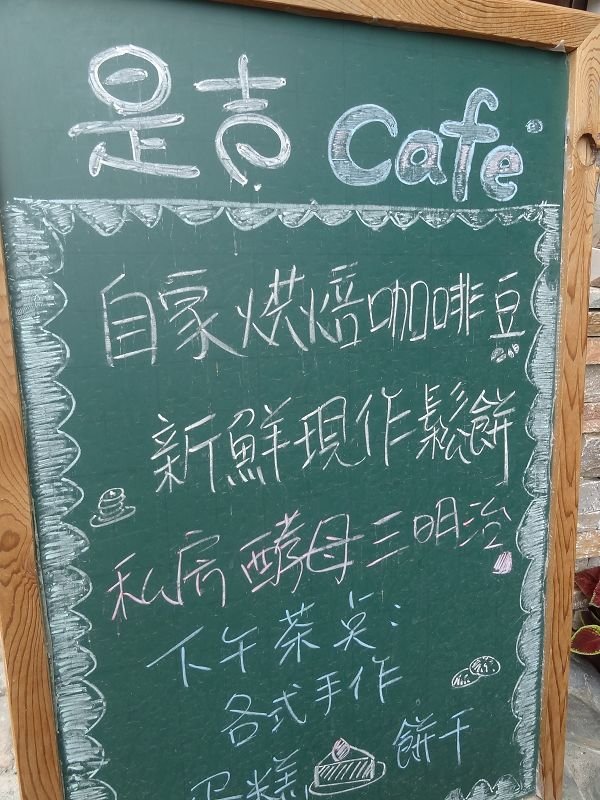 是吉 Cafe
自家烘焙咖啡豆
新鮮現作鬆餅
私房酵母三明治
下午茶点:
各式手作
蛋糕 餅干